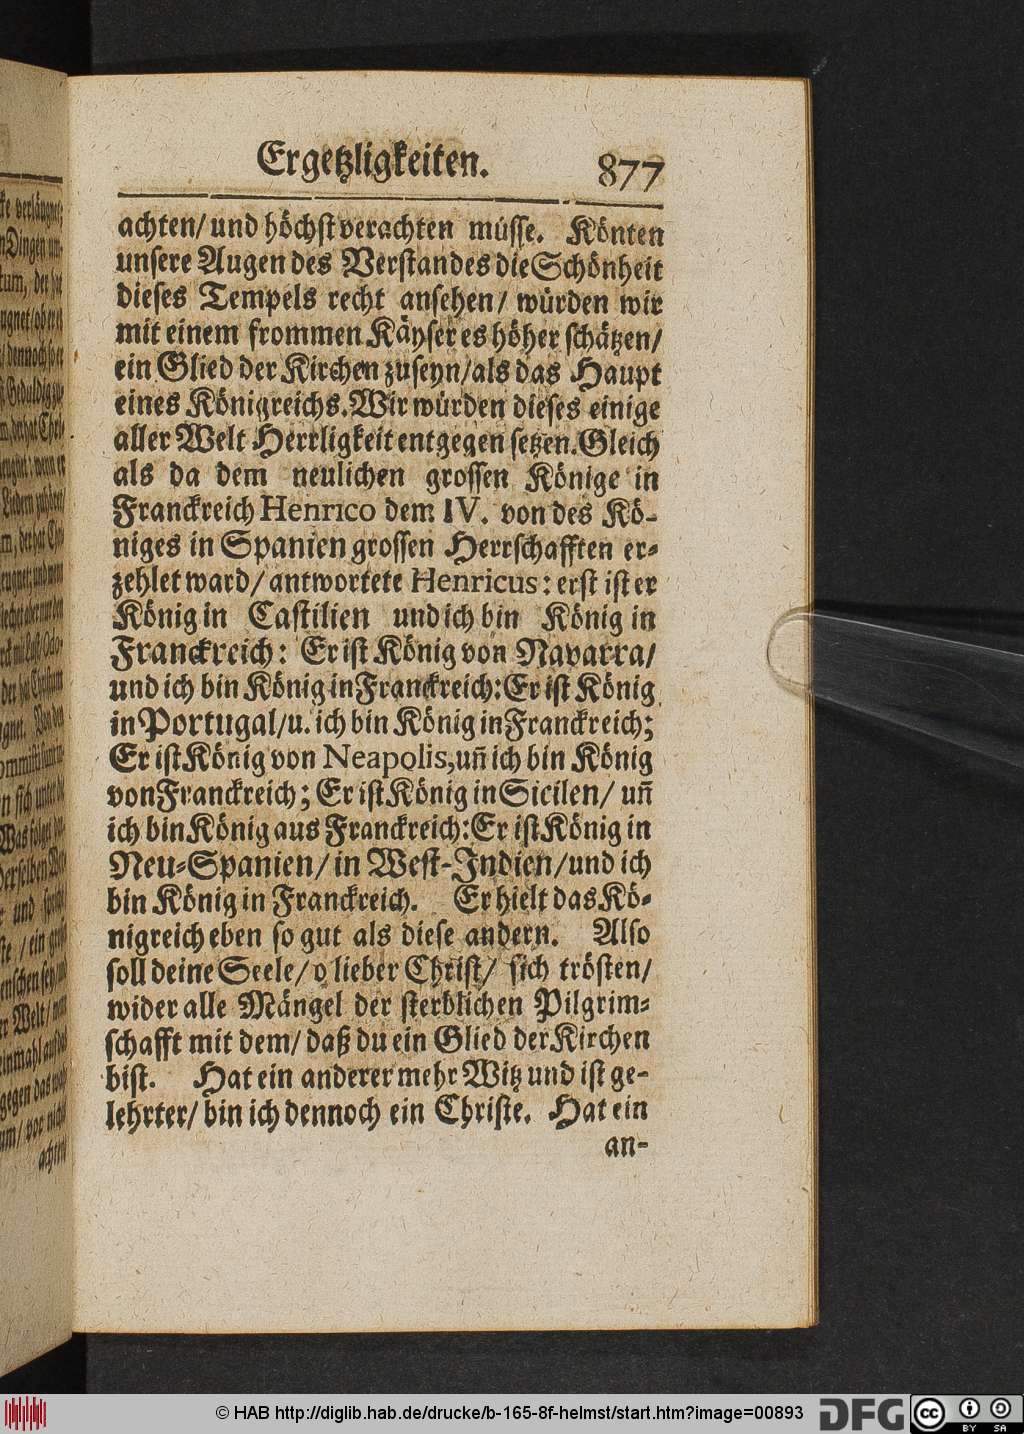 Ergetzligkeiten. 877
achten/ und höchst verachten müsse. Könten
unsere Augen des Verstandes die Schönheit
dieses Tempels recht ansehen/ würden wir
mit einem frommen Käyser es höher schätzen/
ein Glied der Kirchen zu seyn/als das Haupt
eines Königreichs. Wir würden dieses einige
aller Welt Herrligkeit entgegen setzen. Gleich
als da dem neulichen grossen Könige in
Franckreich Henrico dem IV. von des Kö-
niges in Spanien grossen Herrschafften er-
zehlet ward/ antwortete Henricus: erst ist er
König in Castilien und ich bin König in
Franckreich: Er ist König von Navarra/
und ich bin König in Franckreich: Er ist König
in Portugal/u. ich bin König in Franckreich;
Er ist König von Neapolis, un̄ ich bin König
von Franckreich; Er ist König in Sicilen/ un̄
ich bin König aus Franckreich: Er ist König in
Neu-Spanien/ in West-Indien/und ich
bin König in Franckreich. Er hielt das Kö-
nigreich eben so gut als diese andern. Also
soll deine Seele/ o lieber Christ/ sich trösten/
wider alle Mängel der sterblichen Pilgrim-
schafft mit dem/ daß du ein Glied der Kirchen
bist. Hat ein anderer mehr Witz und ist ge-
lehrter/ bin ich dennoch ein Christe. Hat ein
an-
© HAB http://diglib.hab.de/drucke/b-165-8f-helmst/start.htm?image=00893
DFG
cc BY SA